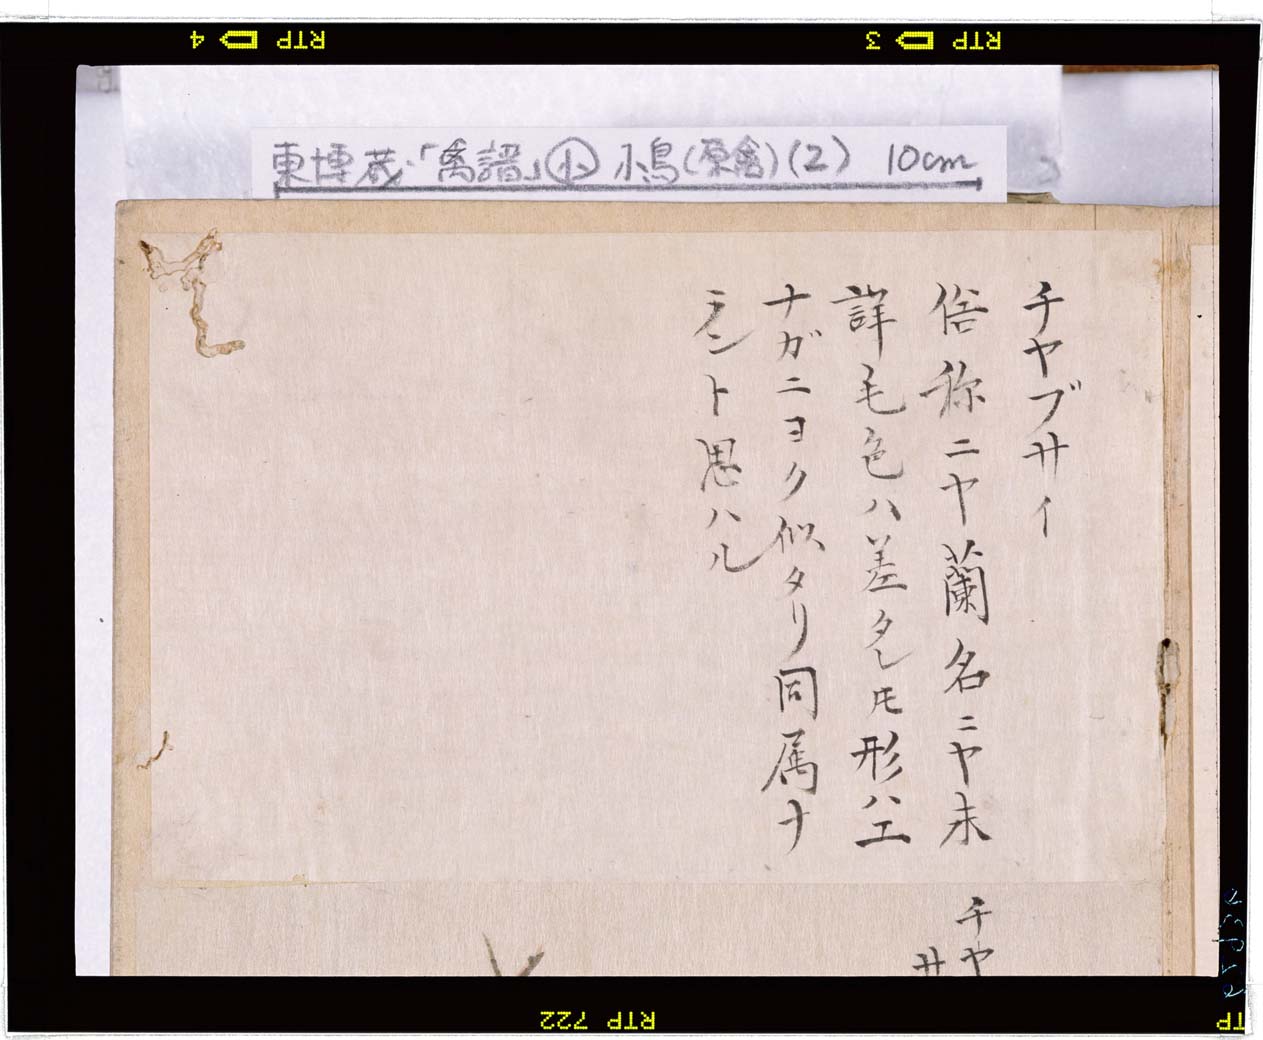 RTP 4
RTP 3
東博蔵「禽譜」小 小鳥(原禽)(2) 10cm
チヤブサイ
俗称ニヤ蘭名ニヤ未
詳毛色ハ差タレ𪜈形ハエ
ナガニヨク似タリ同属ナ
ラント思ハル
チヤ
サ
RTP 722